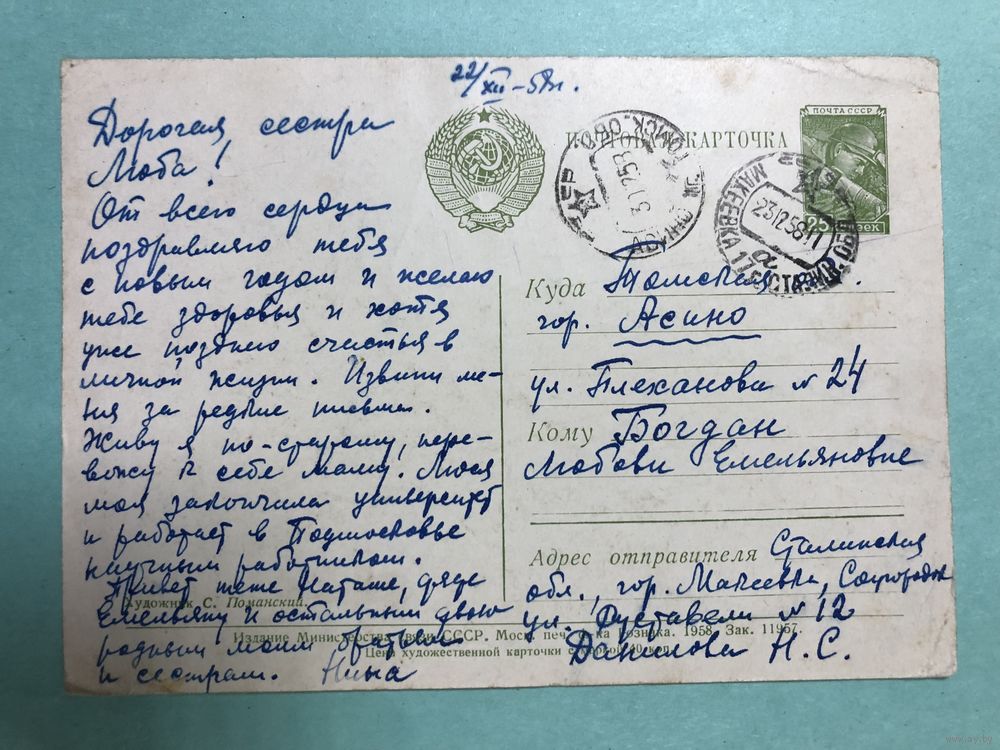 22/XII-58г.
Дорогая сестра
Люба!
От всего сердца
поздравляю тебя
с новым годом и желаю
тебе здоровья и хотя
уже позднего счастья в
личной жизни. Извини ме-
ня за редкие письма.
Живу я по-старому, пере-
вожу к себе маму. Люся
моя закончила университет
и работает в Подмосковье
научным работником.
Привет тёте Наташе, дяде
Емельяну и остальным двою-
родным моим братьям
и сестрам. Нина
ПОЧТОВАЯ КАРТОЧКА
ПОЧТА СССР
25 копеек
ТОМСК. ОБЛ
АСИНО
МАКЕЕВКА 17 СТАЛИН. ОБЛ
231258 11
Куда Томская обл.
гор. Асино
ул. Плеханова № 24
Кому Богдан
Любови Емельяновне
Адрес отправителя Сталинская
обл., гор. Макеевка, Соцгородок
ул. Руставели № 12
Данилова Н. С.
Художник С. Поманский.
Издание Министерства связи СССР. Моск. печ. ф-ка Гознака. 1958. Зак. 11957.
Цена художественной карточки с маркой 40 коп.
www.ay.by